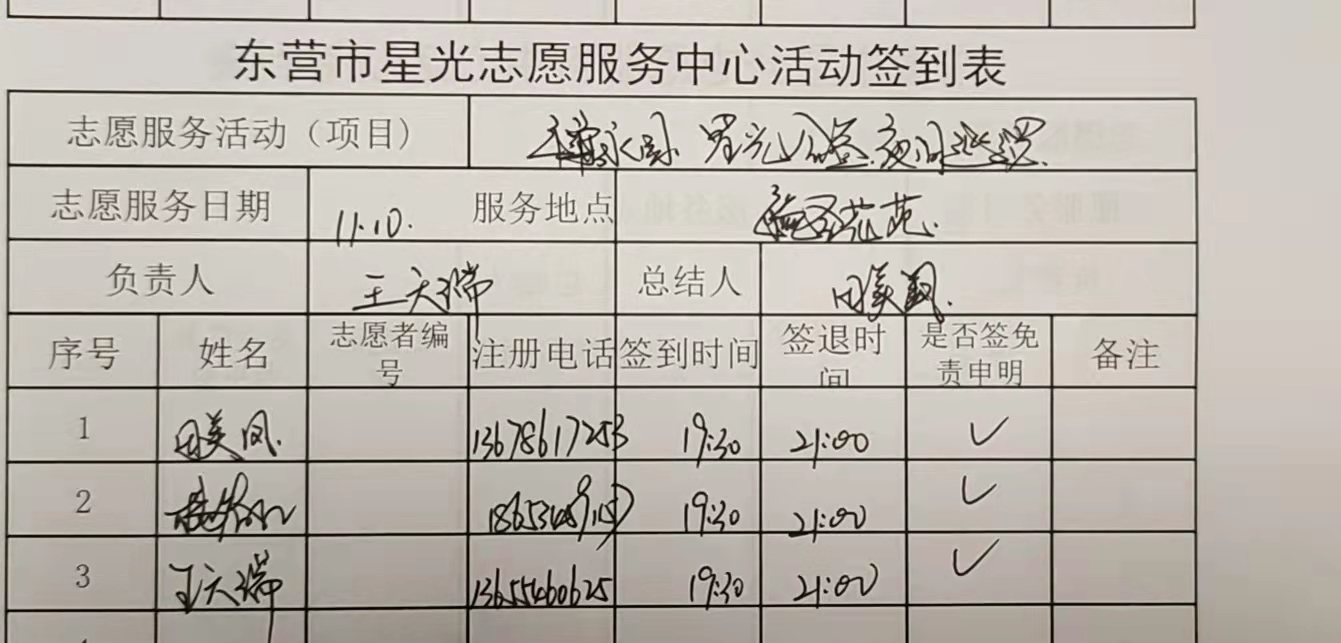 东营市星光志愿服务中心活动签到表
志愿服务活动（项目） 星光公益夜间巡逻
志愿服务日期 11.10. 服务地点
负责人 王天瑞 总结人 田美凤
序号 姓名 志愿者编号 注册电话 签到时间 签退时间 是否签免责申明 备注
1 田美凤 13678617253 19:30 21:00 ✓
2 19:30 21:00 ✓
3 王天瑞 13655460625 19:30 21:00 ✓